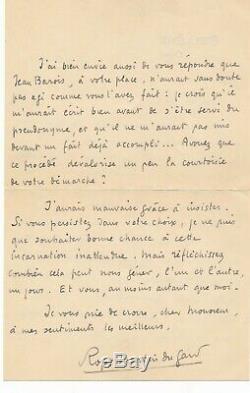 J'ai bien envie aussi de vous répondre que
Jean Barois, à votre place, n'aurait sans doute
pas agi comme vous l'avez fait : je crois qu'il
m'aurait écrit bien avant de s'être servi du
pseudonyme, et qu'il ne m'aurait pas mis
devant un fait déjà accompli... Avouez que
ce procédé dévalorise un peu la courtoisie
de votre démarche ?
J'aurais mauvaise grâce à insister.
Si vous persistez dans votre choix, je ne puis
que souhaiter bonne chance à cette
incarnation inattendue. Mais réfléchissez
combien cela peut nous gêner, l'un et l'autre,
un jour. Et vous, au moins autant que moi.
Je vous prie de croire, cher Monsieur,
à mes sentiments les meilleurs.
Roger Martin du Gard